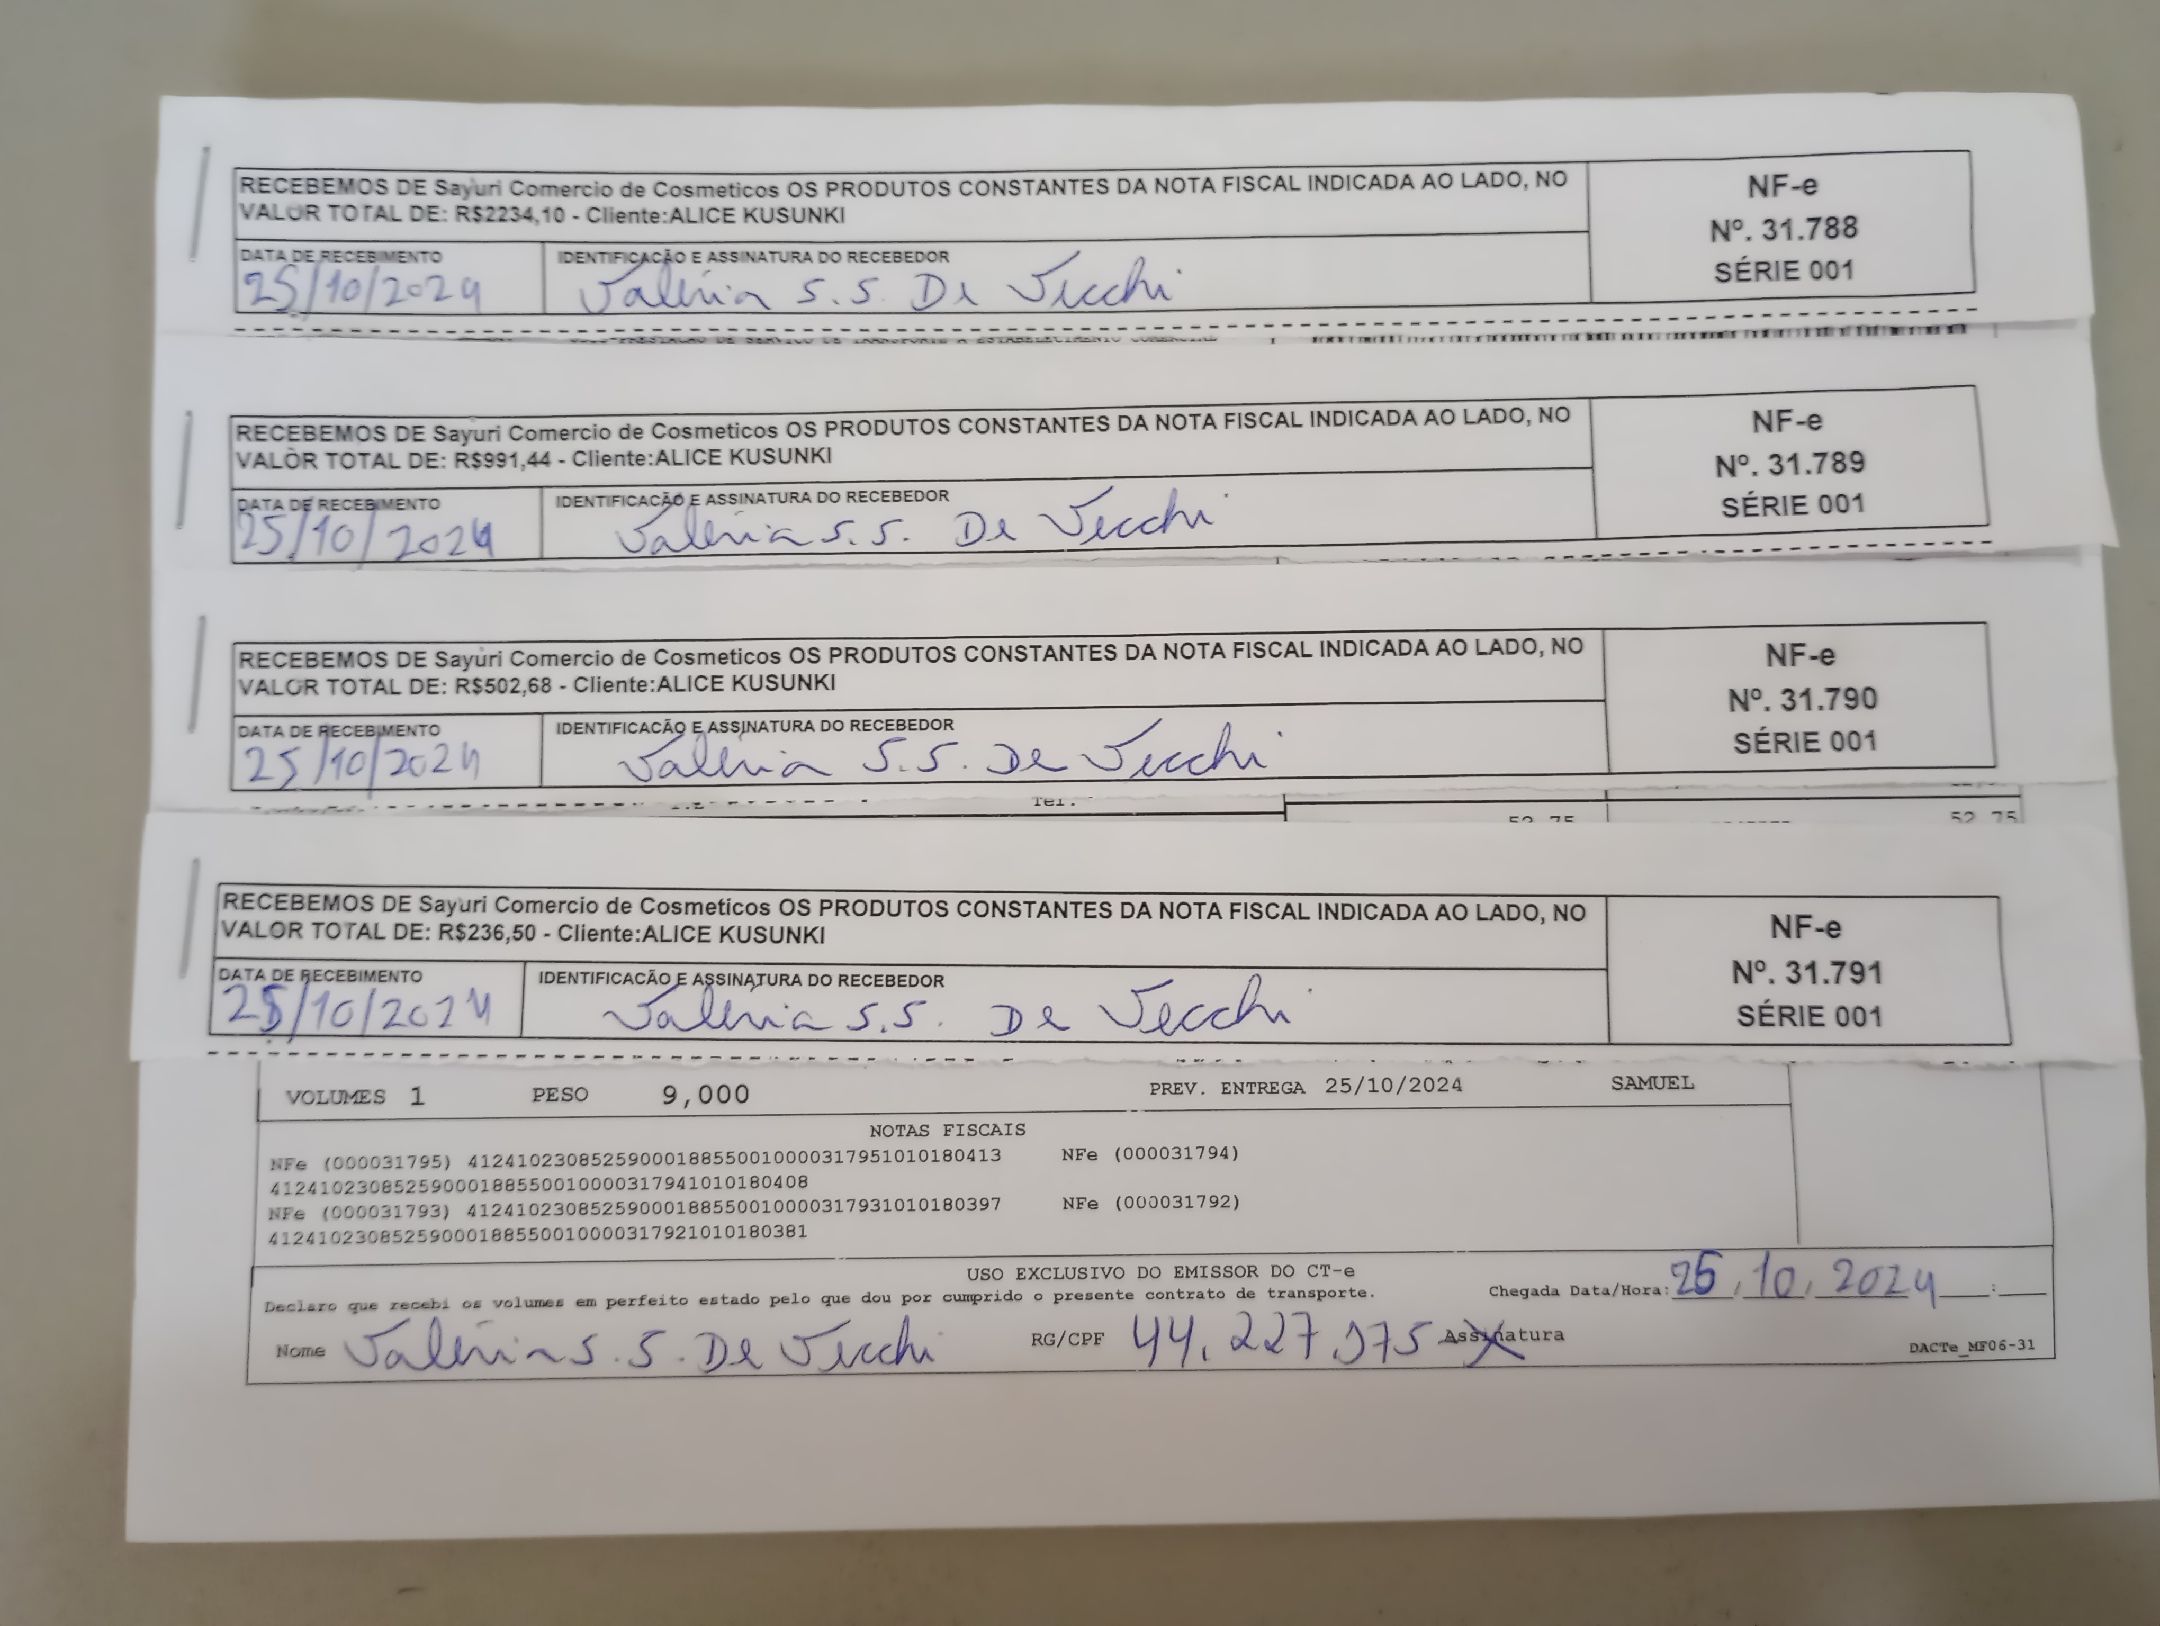 RECEBEMOS DE Sayuri Comercio de Cosmeticos OS PRODUTOS CONSTANTES DA NOTA FISCAL INDICADA AO LADO, NO
VALOR TOTAL DE: R$2234,10 - Cliente:ALICE KUSUNKI
NF-e
Nº. 31.788
SÉRIE 001
DATA DE RECEBIMENTO
25/10/2024
IDENTIFICACÃO E ASSINATURA DO RECEBEDOR
Valéria S.S. De Vecchi
RECEBEMOS DE Sayuri Comercio de Cosmeticos OS PRODUTOS CONSTANTES DA NOTA FISCAL INDICADA AO LADO, NO
VALOR TOTAL DE: R$991,44 - Cliente:ALICE KUSUNKI
NF-e
Nº. 31.789
SÉRIE 001
DATA DE RECEBIMENTO
25/10/2024
IDENTIFICACÃO E ASSINATURA DO RECEBEDOR
Valéria S.S. De Vecchi
RECEBEMOS DE Sayuri Comercio de Cosmeticos OS PRODUTOS CONSTANTES DA NOTA FISCAL INDICADA AO LADO, NO
VALOR TOTAL DE: R$502,68 - Cliente:ALICE KUSUNKI
NF-e
Nº. 31.790
SÉRIE 001
DATA DE RECEBIMENTO
25/10/2024
IDENTIFICACÃO E ASSINATURA DO RECEBEDOR
Valéria S.S. De Vecchi
Tel.
52,75 52,75
RECEBEMOS DE Sayuri Comercio de Cosmeticos OS PRODUTOS CONSTANTES DA NOTA FISCAL INDICADA AO LADO, NO
VALOR TOTAL DE: R$236,50 - Cliente:ALICE KUSUNKI
NF-e
Nº. 31.791
SÉRIE 001
DATA DE RECEBIMENTO
25/10/2024
IDENTIFICACÃO E ASSINATURA DO RECEBEDOR
Valéria S.S. De Vecchi
VOLUMES 1 PESO 9,000 PREV. ENTREGA 25/10/2024 SAMUEL
NOTAS FISCAIS
NFe (000031795) 41241023085259000188550010000317951010180413 NFe (000031794)
41241023085259000188550010000317941010180408
NFe (000031793) 41241023085259000188550010000317931010180397 NFe (000031792)
41241023085259000188550010000317921010180381
USO EXCLUSIVO DO EMISSOR DO CT-e
Declaro que recebi os volumes em perfeito estado pelo que dou por cumprido o presente contrato de transporte.
Chegada Data/Hora: 25.10.2024 :
Nome Valéria S.S. De Vecchi RG/CPF 44.227.375 Assinatura
DACTe_MF06-31